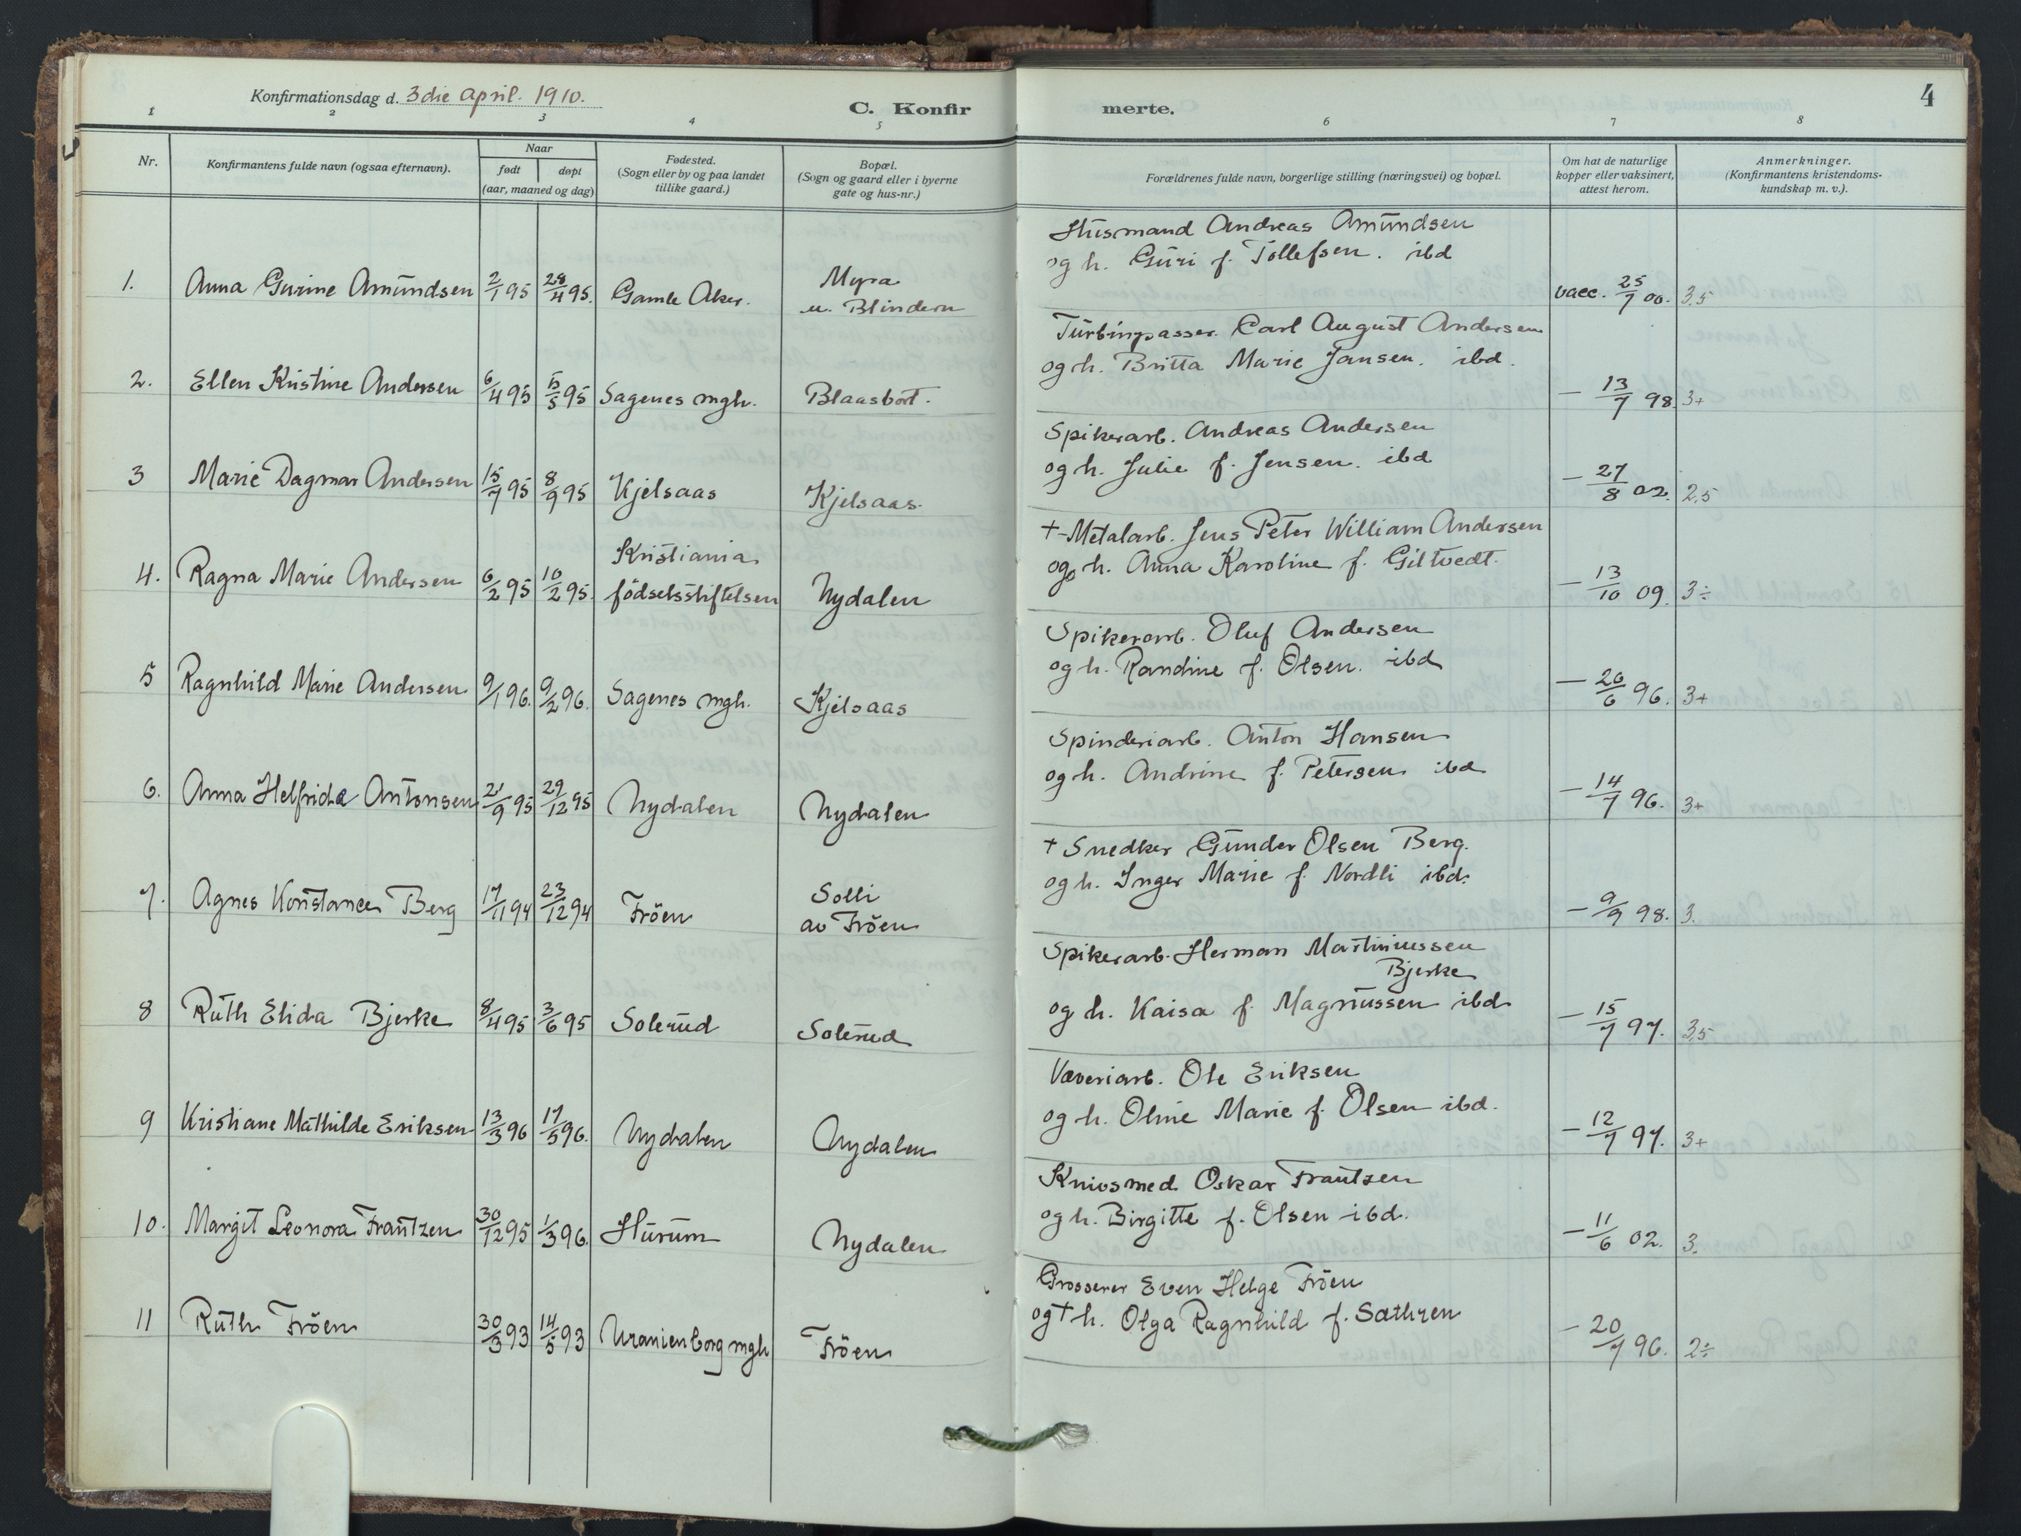 Konfirmationsdag d. 3die april. 1910.
C. Konfir merte.
4
1 2 3 4 5 6 7 8
Nr.
Konfirmantens fulde navn (ogsaa efternavn).
Naar
født døpt
(aar, maaned og dag)
Fødested.
(Sogn eller by og paa landet
tillike gaard.)
Bopæl.
(Sogn og gaard eller i byerne
gate og hus-nr.)
Forældrenes fulde navn, borgerlige stilling (næringsvei) og bopæl.
Om hat de naturlige
kopper eller vaksinert,
attest herom.
Anmerkninger.
(Konfirmantens kristendoms-
kundskap m. v.).
Husmand Andreas Amundsen
og h. Guri f. Tollefsen. ibd
1. Anna Gurine Amundsen 2/1 95 28/4 95. Gamle Aker. Myra
u. Blindern
vacc. 25/7 00. 3,5
Turbinpasser Carl August Andersen
og h. Britta Marie Jansen. ibd.
2. Ellen Kristine Andersen 6/4 95 5/5 95 Sagenes mgh. Blaasbort. — 13/7 98. 3+
Spikerarb. Andreas Andersen
og h. Julie f. Jensen. ibd
3 Marie Dagmar Andersen 15/7 95 8/9 95 Kjelsaas Kjelsaas. — 27/8 02. 2,5
+ Metalarb. Jens Peter William Andersen
og h. Anna Karoline f. Giltvedt.
4. Ragna Marie Andersen 6/2 95 10/2 95. Kristiania
födselsstiftelsen Nydalen — 13/10 09. 3÷
Spikerarb. Oluf Andersen
og h. Randine f. Olsen. ibd
5 Ragnhild Marie Andersen 9/1 96. 9/2 96. Sagenes mgh. Kjelsaas — 26/6 96. 3+
Spinderiarb. Anton Hansen
og h. Andrine f. Petersen ibd
6. Anna Helfrida Antonsen 21/9 95 29/12 95 Nydalen Nydalen — 14/7 96. 3+
+ Snedker Gunder Olsen Berg.
og h. Inger Marie f. Nordli ibd.
7. Agnes Konstance Berg 17/11 94 23/12 94 Fröen Solli
av Fröen
— 9/9 98. 3.
Spikerarb. Herman Martiniussen
Bjerke
og h. Kaisa f. Magnussen ibd
8 Ruth Elida Bjerke 8/4 95 3/6 95 Solerud Solerud — 15/7 97. 3,5
Væveriarb. Ole Eriksen
og h. Oline Marie f. Olsen ibd.
9 Kristiane Mathilde Eriksen 13/3 96 17/5 96. Nydalen Nydalen — 12/7 97. 3+
Knivsmed Oskar Frantzen
og h. Birgitte f. Olsen ibd.
10. Margit Leonora Frantzen 30/12 95 1/3 96. Hurum Nydalen — 11/6 02. 3.
Grosserer Even Helge Fröen
og + h. Olga Ragnhild f. Sæthren
11 Ruth Fröen 30/3 93 14/5 93 Uranienborg mgh Fröen — 20/7 96. 2÷